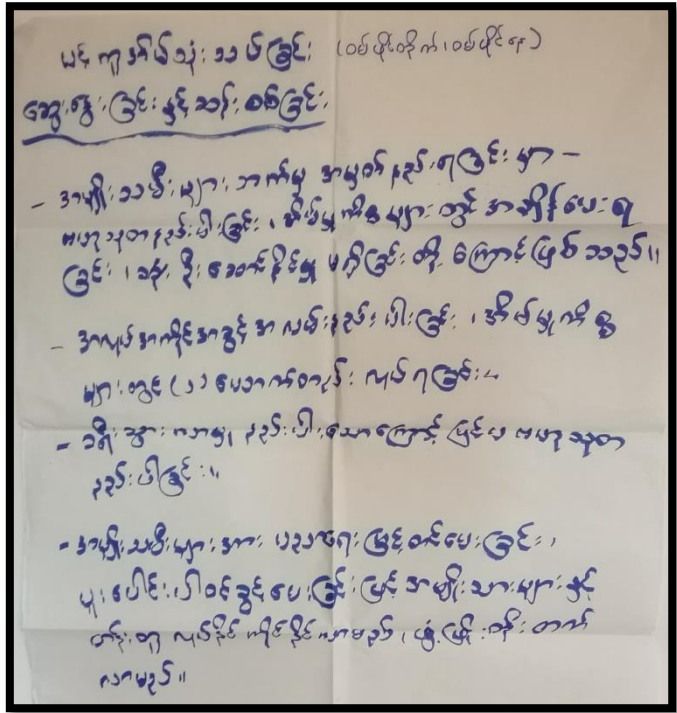 ပင့်ကူအိမ်သုံးသပ်ခြင်း (ဝမ်ပိုင်တိုက်၊ ဝမ်ပိုင်နေ)
ဆွေးနွေးခြင်းနှင့်ဆန်းစစ်ခြင်း
- အမျိုးသမီးများဘက်မှ အမှတ်နည်းရခြင်းမှာ -
ဗဟုသုတနည်းပါးခြင်း၊ အိမ်မှုကိစ္စများတွင် အချိန်ပေးရ
ခြင်း၊ ဦးဆောင်နိုင်မှု မရှိခြင်းတို့ ကြောင့်ဖြစ်သည်။
- အလုပ်အကိုင်အခွင့်အလမ်းနည်းပါးခြင်း၊ အိမ်မှုကိစ္စ
များတွင် (၁) ယောက်တည်း လုပ်ရခြင်း။
- ခရီးသွားလာမှု နည်းပါးသောကြောင့် ပြင်ပ ဗဟုသုတ
နည်းပါးခြင်း။
- အမျိုးသမီးများအား ပညာရေးမြှင့်တင်ပေးခြင်း၊
ပူးပေါင်းပါဝင်ခွင့်ပေးခြင်းဖြင့် အမျိုးသားများနှင့်
တန်းတူ လုပ်နိုင်ကိုင်နိုင်လာမည်၊ ဖွံ့ဖြိုးတိုးတက်
လာမည်။